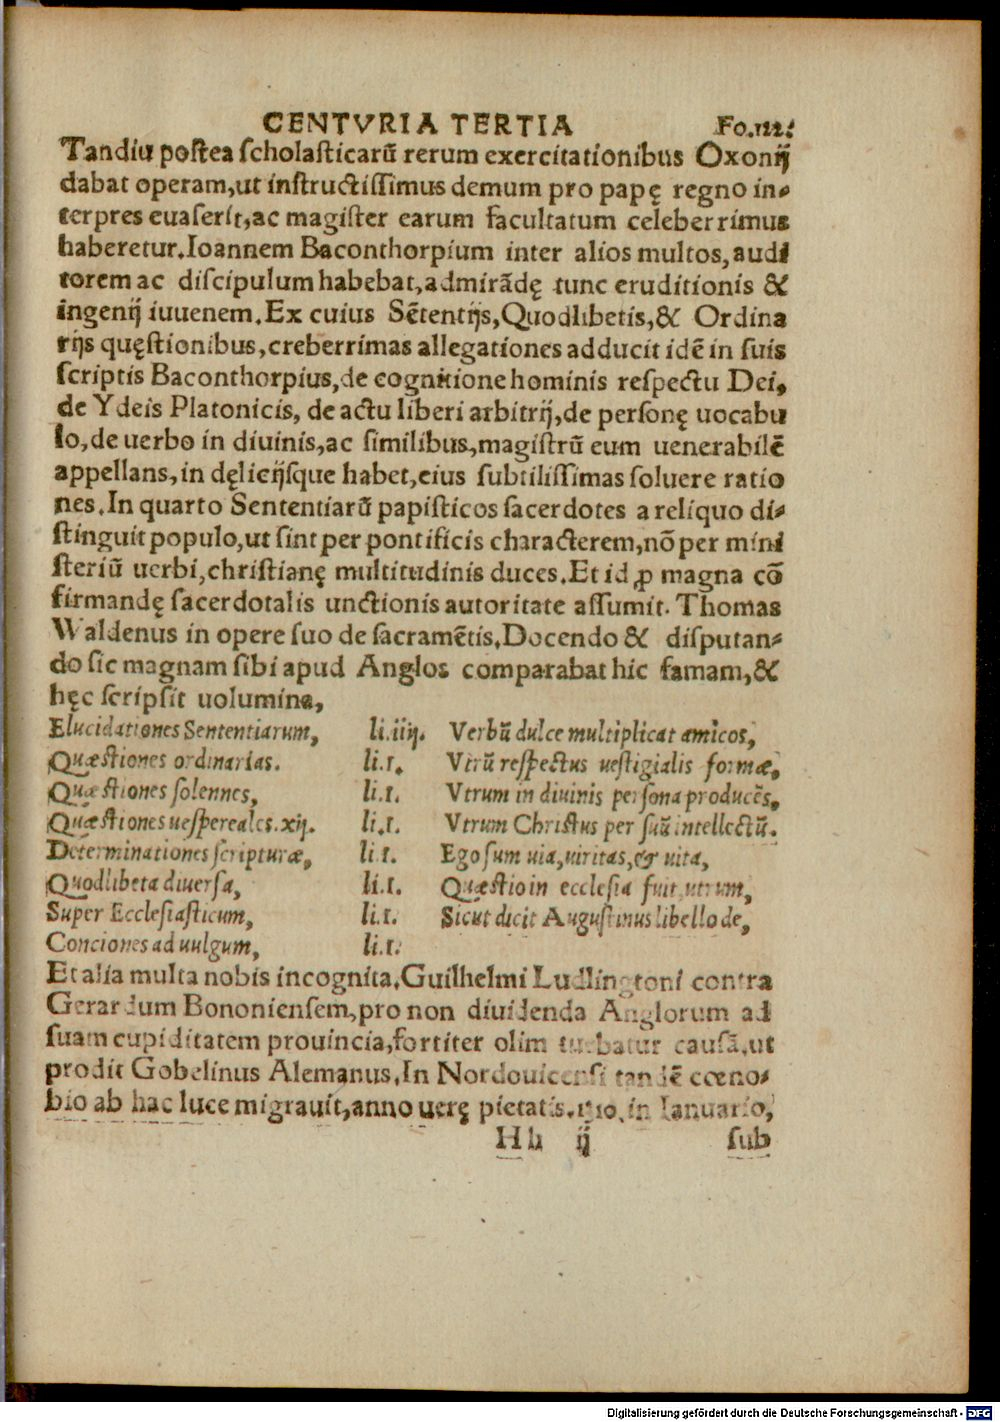 CENTVRIA TERTIA Fo.111.
Tandiu postea scholasticarũ rerum exercitationibus Oxonij
dabat operam, ut instructissimus demum pro papę regno in-
terpres euaserit, ac magister earum facultatum celeberrimus
haberetur. Ioannem Baconthorpium inter alios multos, audi
torem ac discipulum habebat, admirãdę tunc eruditionis &
ingenij iuuenem. Ex cuius Sẽtentijs, Quodlibetis, & Ordina
rijs quęstionibus, creberrimas allegationes adducit idẽ in suis
scriptis Baconthorpius, de cognitione hominis respectu Dei,
de Ydeis Platonicis, de actu liberi arbitrij, de personę uocabu
lo, de uerbo in diuinis, ac similibus, magistrũ eum uenerabilẽ
appellans, in dęlicijsque habet, eius subtilissimas soluere ratio
nes. In quarto Sententiarũ papisticos sacerdotes a reliquo di-
stinguit populo, ut sint per pontificis characterem, nõ per mini
steriũ uerbi, christianę multitudinis duces. Et id ꝓ magna cõ
firmandę sacerdotalis unctionis autoritate assumit. Thomas
Waldenus in opere suo de sacramẽtis. Docendo & disputan-
do sic magnam sibi apud Anglos comparabat hic famam, &
hęc scripsit uolumina,
Elucidationes Sententiarum, li.iiij. Verbũ dulce multiplicat amicos,
Quæstiones ordinarias. li.1. Vtrũ respectus uestigialis formæ,
Quæstiones solennes, li.1. Vtrum in diuinis persona producẽs,
Quæstiones uespereales.xij. li.1. Vtrum Christus per suũ intellectũ.
Determinationes scripturæ, li.1. Ego sum uia, uiritas, & uita,
Quodlibeta diuersa, li.1. Quæstio in ecclesia fuit, utrum,
Super Ecclesiasticum, li.1. Sicut dicit Augustinus libello de,
Conciones ad uulgum, li.1.
Et alia multa nobis incognita. Guilhelmi Ludlingtoni contra
Gerardum Bononiensem, pro non diuidenda Anglorum ad
suam cupiditatem prouincia, fortiter olim turbatur causã, ut
prodit Gobelinus Alemanus. In Nordouicensi tandẽ cœno-
bio ab hac luce migrauit, anno uerę pietatis. in Ianuario,
Hh ij sub
Digitalisierung gefördert durch die Deutsche Forschungsgemeinschaft - DFG